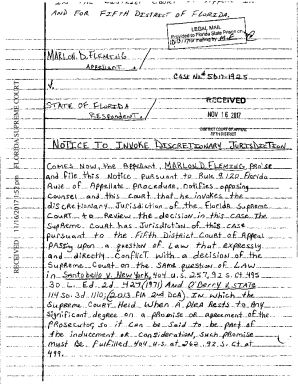 AND FOR FIFTH DISTRICT OF FLORIDA,
LEGAL MAIL
Provided to Florida State Prison on
for mailing by
MARLON D. FLEMING
APPELLANT,
CASE NO# 5D17-1925
V.
STATE OF FLORIDA
RESPONDENT,
RECEIVED
NOV 16 2017
DISTRICT COURT OF APPEAL
FIFTH DISTRICT
NOTICE TO INVOKE DISCRETIONARY JURISDICTION
COMES NOW, the Appellant, MARLON D. FLEMING, Pro se
and file this Notice pursuant to Rule 9.120 Florida
Rule of Appellate Procedure, notifies opposing
counsel and this court that he invokes the
discretionary Jurisdiction of the Florida Supreme
Court to Review the decision in this case. The
Supreme Court has Jurisdiction of this case
pursuant to the Fifth District Court of Appeal
passing upon a question of Law that expressly
and directly conflict with a decision of the
Supreme Court on the same question of Law
in Santobello v. New York, 404 U.S. 257, 92 S. Ct. 495
30 L. Ed. 2d 427 (1971) And O'Berry v. STATE
114 So. 3d. 1110, (2013 FlA 2nd DCA) In which the
Supreme Court Held When A Plea Rests to Any
significant degree on a promise or agreement of the
Prosecutor, so it can be said to be part of
the inducement or consideration, such promise
must be fulfilled. 404 U.S. at 262. 92 S. Ct. at
499.
RECEIVED, 11/16/2017 FLORIDA SUPREME COURT